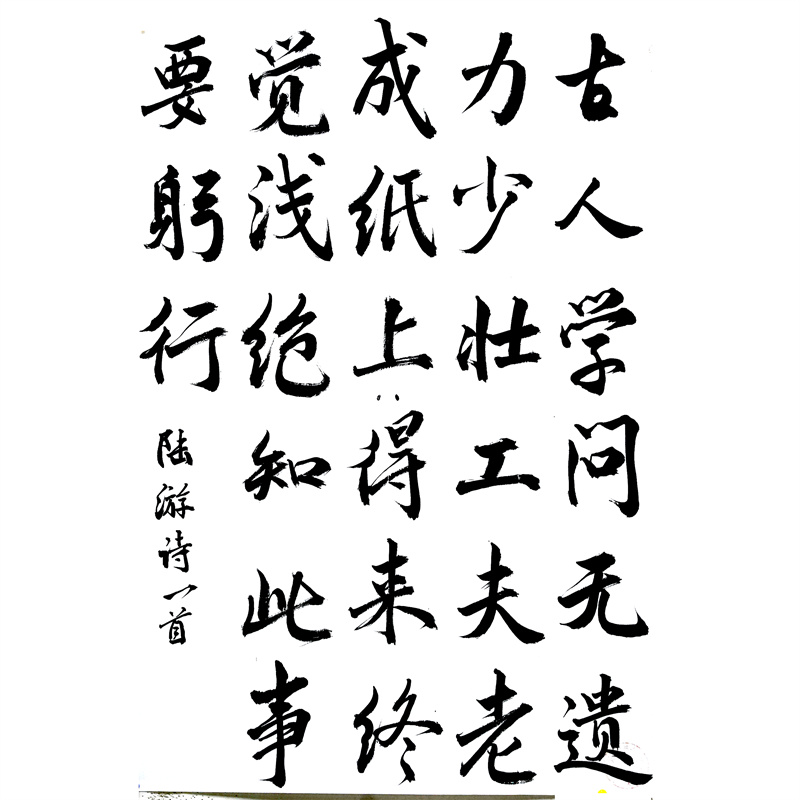 古人学问无遗
力少壮工夫老
成纸上得来终
觉浅绝知此事
要躬行
陆游诗一首